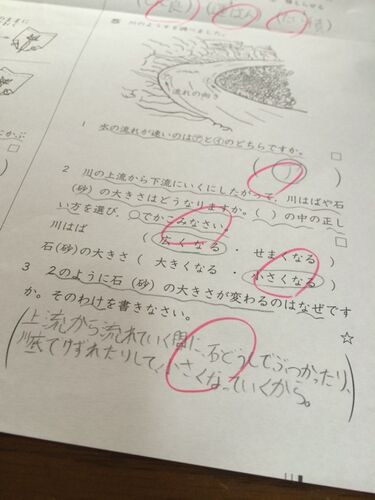 川のようすを調べました。
流れの向き
1 水の流れが速いのは㋐と㋑のどちらですか。
2 川の上流から下流にいくにしたがって、川はばや石
(砂)の大きさはどうなりますか。( )の中の正し
い方を選び、○でかこみなさい。
川はば (広くなる ・ せまくなる)
石(砂)の大きさ (大きくなる ・ 小さくなる)
3 2のように石(砂)の大きさが変わるのはなぜです
か。そのわけを書きなさい。
上流から流れていく間に、石どうしでぶつかったり、
川底でけずれたりして、小さくなっていくから。